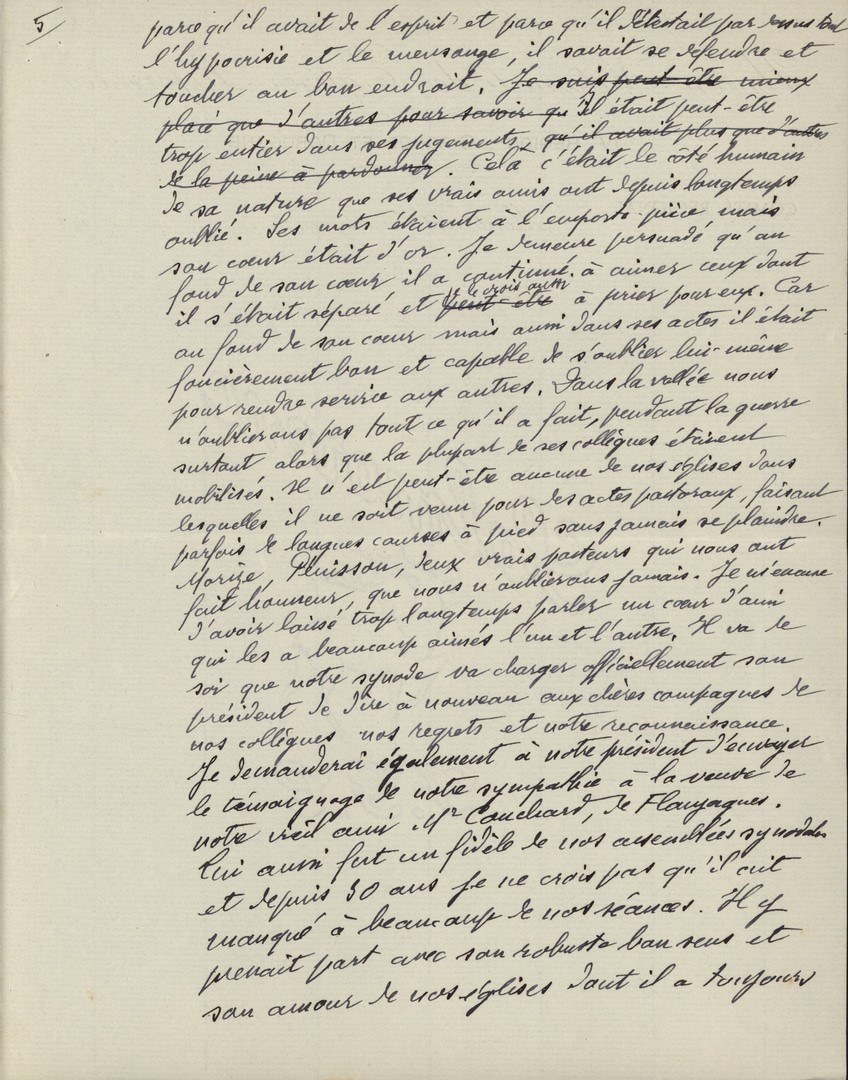 5/
parce qu'il avait de l'esprit et parce qu'il détestait par dessus tout
l'hypocrisie et le mensonge, il savait se défendre et
toucher au bon endroit. Je suis peut être mieux
placé que d'autres pour savoir qu'il était peut-être
trop entier dans ses jugements, qu'il avait plus que d'autres
de la peine à pardonner. Celà c'était le côté humain
de sa nature que ses vrais amis ont depuis longtemps
oublié. Ses mots étaient à l'emporte-pièce mais
son coeur était d'or. Je demeure persuadé qu'au
fond de son coeur il a continué à aimer ceux dont
je le crois aussi
il s'était séparé et peut-être à prier pour eux. Car
au fond de son coeur mais aussi dans ses actes il était
foncièrement bon et capable de s'oublier lui-même
pour rendre service aux autres. Dans la vallée nous
n'oublierons pas tout ce qu'il a fait, pendant la guerre
surtout alors que la plupart de ses collègues étaient
mobilisés. Il n'est peut-être aucune de nos églises dans
lesquelles il ne soit venu pour des actes pastoraux, faisant
parfois de longues courses à pied sans jamais se plaindre.
Morize, Pénisson, deux vrais pasteurs qui nous ont
fait honneur, que nous n'oublierons jamais. Je m'excuse
d'avoir laissé trop longtemps parler un coeur d'ami
qui les a beaucoup aimés l'un et l'autre. Il va de
soi que notre synode va charger officiellement son
président de dire à nouveau aux chères compagnes de
nos collègues nos regrets et notre reconnaissance.
Je demanderai également à notre président d'envoyer
le témoignage de notre sympathie à la veuve de
notre vieil ami Mr Couchard, de Flaujagues.
Lui aussi fut un fidèle de nos assemblées synodales
et depuis 30 ans je ne crois pas qu'il ait
manqué à beaucoup de nos séances. Il y
prenait part avec son robuste bon sens et
son amour de nos églises dont il a toujours